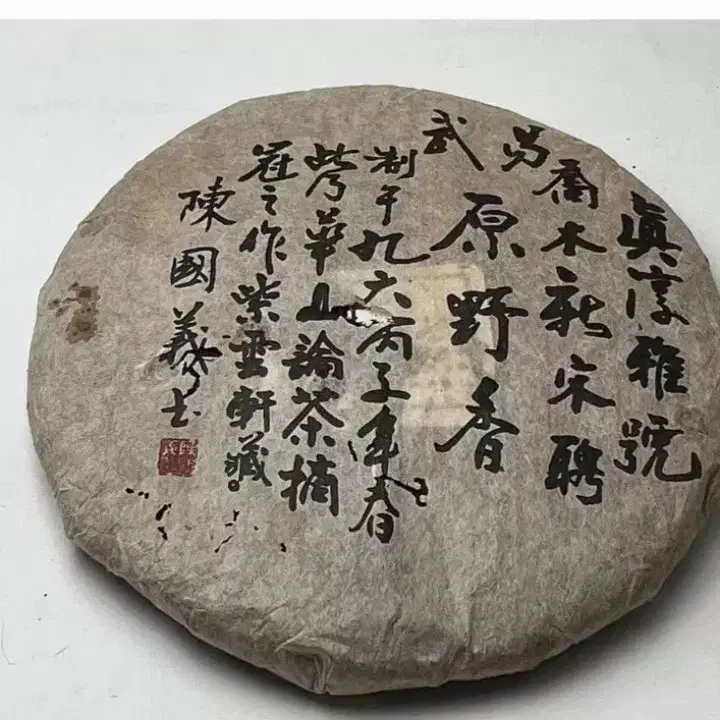 眞淳雅號
喬木新宋聘
易武
原野香
制于九六丙子年春
華山論茶摘
冠之作紫雲軒藏
陳國義